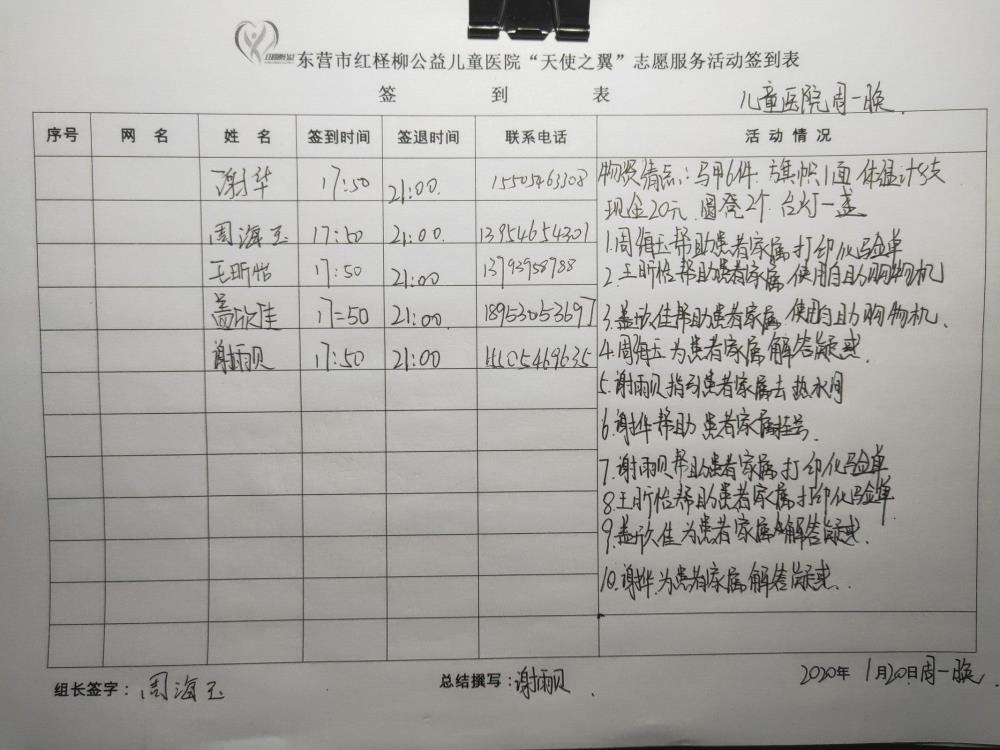 东营市红柽柳公益儿童医院“天使之翼”志愿服务活动签到表
签 到 表
儿童医院周一晚
序号 网 名 姓 名 签到时间 签退时间 联系电话 活 动 情 况
谢华 17:50 21:00. 15505463308
物资清点:马甲6件 旗帜1面 体温计5支
现金20元 圆凳2个 台灯一盏
周海玉 17:50 21:00. 13954654301
1.周海玉帮助患者家属打印化验单
王昕怡 17:50 21:00 13793958788
2.王昕怡帮助患者家属使用自助购物机
盖欣佳 17:50 21:00. 18953053697
3.盖欣佳帮助患者家属使用自助购物机.
谢雨贝 17:50 21:00 15105469635
4.周海玉为患者家属解答疑惑.
5.谢雨贝指引患者家属去热水间
6.谢华帮助患者家属挂号.
7.谢雨贝帮助患者家属打印化验单
8.王昕怡帮助患者家属打印化验单
9.盖欣佳为患者家属解答疑惑.
10.谢华为患者家属解答疑惑.
组长签字:周海玉 总结撰写:谢雨贝. 2020年1月20日周一晚